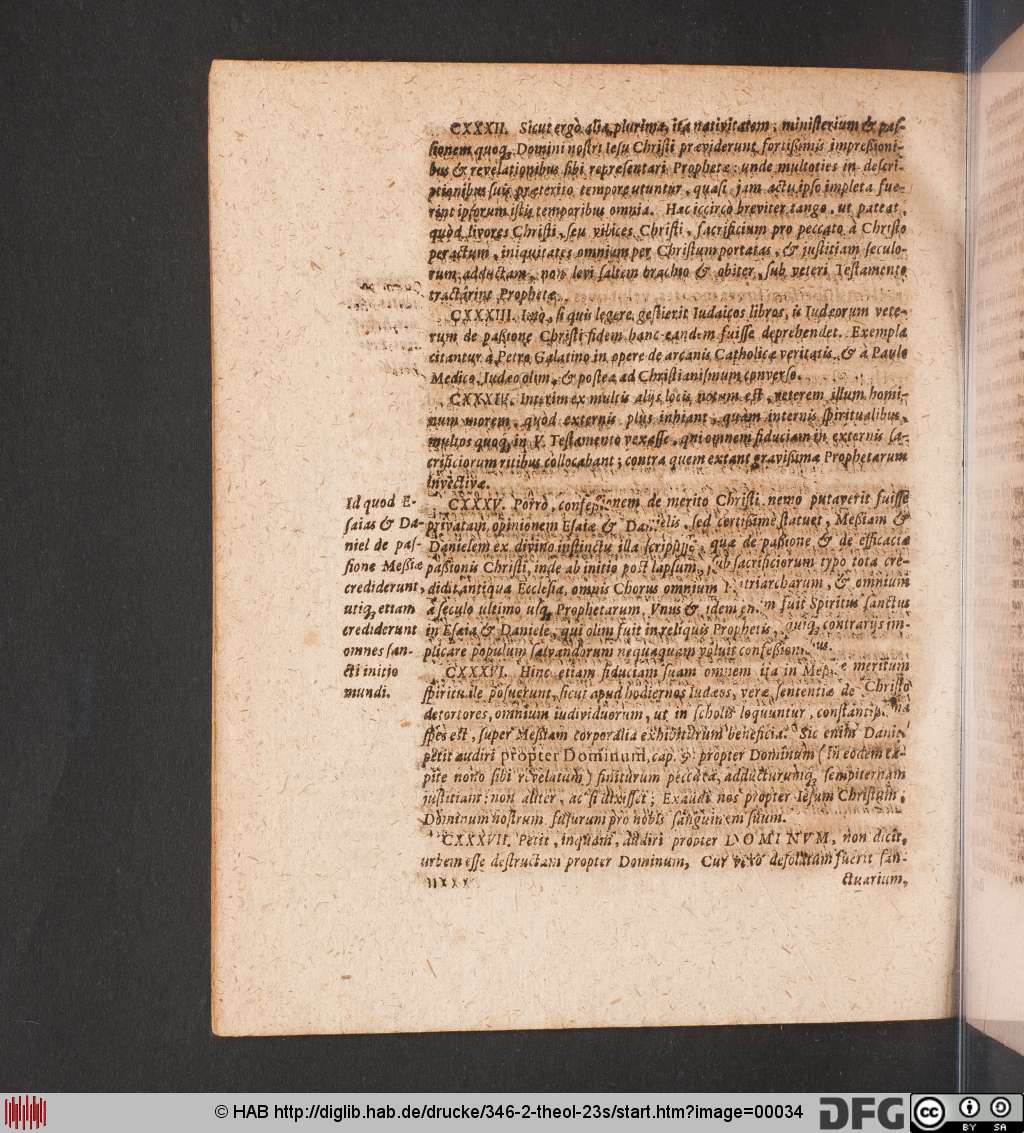 CXXXII. Sicut ergò alia plurima, ita nativitatem, ministerium & pas-
sionem quoq; Domini nostri Iesu Christi præviderunt, fortißimis impreßioni-
bus & revelationibus sibi repræsentari Prophetæ: unde multoties in descri-
ptionibus suis præterito tempore utuntur, quasi jam actu ipso impleta fue-
rint ipsorum istis temporibus omnia. Hæc iccircò breviter tango, ut pateat,
quòd livores Christi, seu vibices Christi, sacrificium pro peccato à Christo
peractum, iniquitates omnium per Christum portatas, & justitiam seculo-
rum adductam, non levi saltem brachio & obiter, sub veteri Testamento
tractârint Prophetæ.
CXXXIII. Imò, si quis legere gestierit Iudaicos libros, is Iudæorum vete-
rum de paßione Christi fidem hanc eandem fuisse deprehendet. Exempla
citantur à Petro Galatino in opere de arcanis Catholicæ veritatis, & à Paulo
Medico, Iudæo olim, & posteà ad Christianismum converso.
CXXXIV. Interim ex multis alijs locis notum est, veterem illum homi-
num morem, quòd externis plùs inhiant, quàm internis spiritualibus,
multos quoq; in V. Testamento vexasse, qui omnem fiduciam in externis sa-
crificiorum ritibus collocabant; contra quem extant gravißimæ Prophetarum
invectivæ.
Id quod E-
saias & Da-
niel de pas-
sione Meßiæ
crediderunt,
utiq; etiam
crediderunt
omnes san-
cti initio
mundi.
CXXXV. Porrò, confeßionem de merito Christi nemo putaverit fuisse
privatam opinionem Esaiæ & Danielis, sed certißimè statuet, Meßiam &
Danielem ex divino instinctu illa scripsisse, quæ de paßione & de efficacia
paßionis Christi, inde ab initio post lapsum, sub sacrificiorum typo tota cre-
didit antiqua Ecclesia, omnis Chorus omnium Patriarcharum, & omnium
à seculo ultimo usq; Prophetarum. Vnus & idem enim fuit Spiritus sanctus
in Esaia & Daniele, qui olim fuit in reliquis Prophetis, quiq; contrarijs im-
plicare populum salvandorum nequaquam voluit confeßionibus.
CXXXVI. Hinc etiam fiduciam suam omnem ita in Meßiæ meritum
spirituale posuerunt, sicut apud hodiernos Iudæos, veræ sententiæ de Christo
detortores, omnium individuorum, ut in scholis loquuntur, constantißima
spes est, super Meßiam corporalia exhibiturum beneficia. Sic enim Daniel
petit audiri propter Dominum, cap. 9: propter Dominum (in eodem ca-
pite nono sibi revelatum) finiturum peccata, adducturumq; sempiternam
justitiam: non aliter, ac si dixisset; Exaudi nos propter Iesum Christum,
Dominum nostrum fusurum pro nobis sanguinem suum.
CXXXVII. Petit, inquam, audiri propter DOMINVM, non dicit,
urbem esse destructam propter Dominum, Cur verò desolatam fuerit san-
ctuarium,
© HAB http://diglib.hab.de/drucke/346-2-theol-23s/start.htm?image=00034
DFG
cc
BY SA